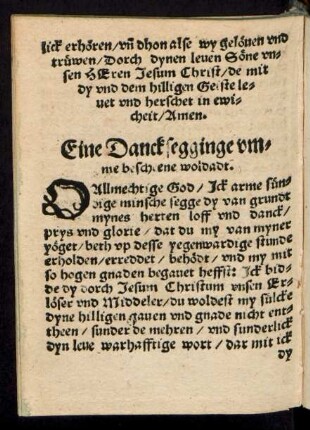 lick erhören/ vñ dhon alse wy gelöuen vnd
trüwen/ Dorch dynen leuen Söne vn-
sen HEren Jesum Christ/ de mit
dy vnd dem hilligen Geiste le-
uet vnd herschet in ewi-
cheit/ Amen.
Eine Danck segginge vm-
me besch ene woldadt.
O Allmechtige God/ Ick arme sün-
dige minsche segge dy van grundt
mynes herten loff vnd danck/
prys vnd glorie/ dat du my van myner
yöget/ beth vp desse yegenwardige stunde
erholden/ erreddet/ behödt/ vnd my mit
so hogen gnaden begauet heffst: Ick bid-
de dy dorch Jesum Christum vnsen Er-
löser vnd Middeler/ du woldest my sülcke
dyne hilligen gauen vnd gnade nicht ent-
theen/ sunder de mehren/ vnd sunderlick
dyn leue warhafftige wort/ dar mit ick
dy